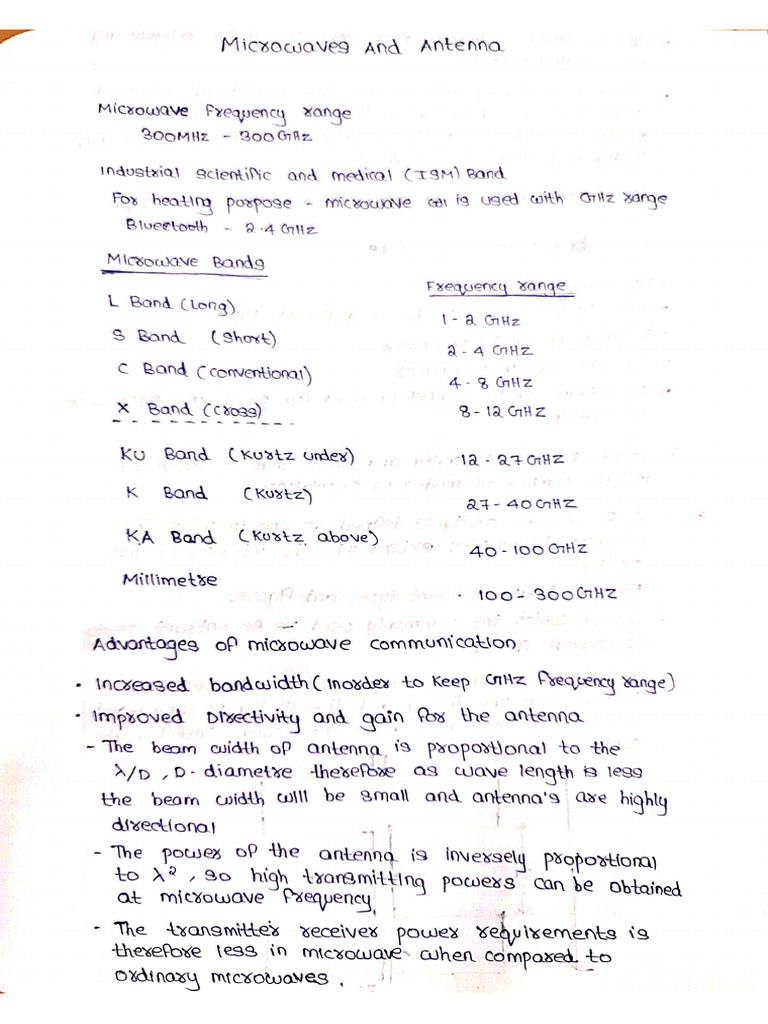 Microwaves And Antenna
Microwave Frequency range
300MHz - 300GHz
Industrial scientific and medical (ISM) Band
For heating purpose - microwave is used with GHz range
Bluetooth - 2.4 GHz
Microwave Bands
Frequency range
L Band (Long)
1 - 2 GHz
S Band (Short)
2 - 4 GHz
C Band (conventional)
4 - 8 GHz
X Band (Cross)
8 - 12 GHz
KU Band (Kurtz under)
12 - 27 GHz
K Band (Kurtz)
27 - 40 GHz
KA Band (Kurtz above)
40 - 100 GHz
Millimetre
100 - 300 GHz
Advantages of microwave communication.
• Increased bandwidth (Inorder to keep GHz frequency range)
• Improved Directivity and gain for the antenna
- The beam width of antenna is proportional to the
λ/D , D - diametre therefore as wave length is less
the beam width will be small and antenna's are highly
directional
- The power of the antenna is inversely proportional
to λ² , so high transmitting powers can be obtained
at microwave frequency.
- The transmitter receiver power requirements is
therefore less in microwave when compared to
ordinary microwaves.